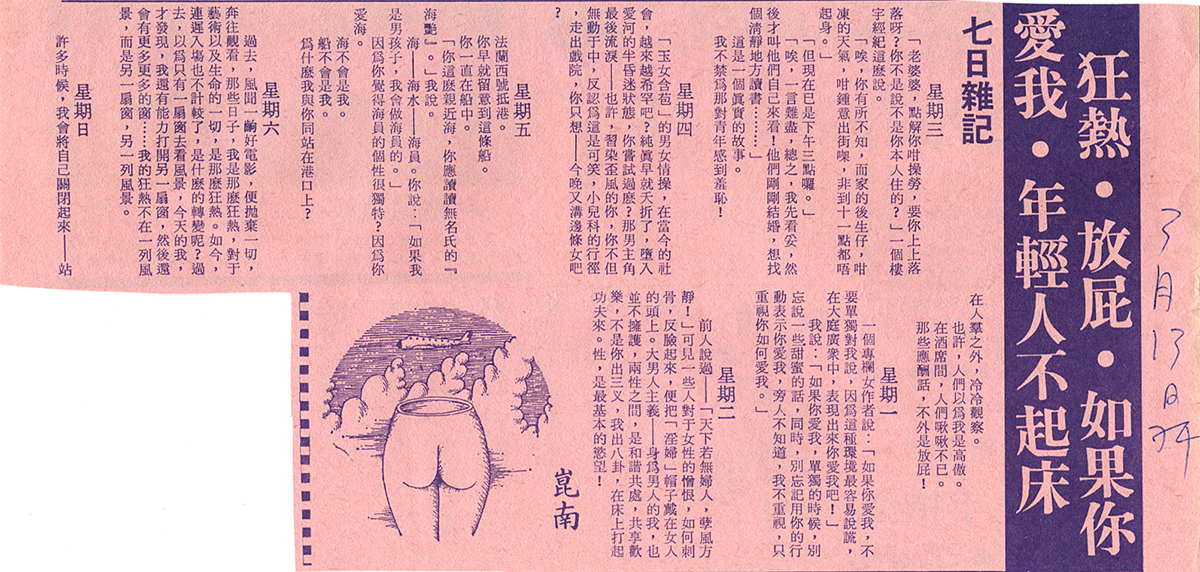 狂熱・放屁・如果你
愛我・年輕人不起床
3月13日74
七日雜記
星期三
「老婆婆，點解你咁操勞，要你上上落
落呀？你不是說不是你本人住的？」一個樓
宇經紀這麽說。
「唉，你有所不知，而家的後生仔，咁
凍的天氣，咁鍾意出街㗎，非到十一點都唔
起身。」
「但現在已是下午三點囉。」
「唉，一言難盡，總之，我先看妥，然
後才叫他們自己來看！他們剛剛結婚，想找
個清靜地方讀書⋯⋯」
這是一個眞實的故事。
我不禁爲那對青年感到羞恥！
星期四
「玉女含苞」的男女情操，在當今的社
會，越來越希罕吧？純眞早就天折了，墮入
愛河的半昏迷狀態，你嘗試過麽？那男主角
最後流淚——也許，習染歪風的你，你不但
無動于中，反認爲這是可笑，小兒科的行徑
，走出戲院，你只想——今晚又溝邊條女吧
？
星期五
法蘭西號抵港。
你早就留意到這條船。
你一直在船中。
「你這麽親近海，你應讀讀無名氏的『
海艷』。」我說。
海——海水——海員。你說：「如果我
是男孩子，我會做海員的。」
因爲你覺得海員的個性很獨特？因爲你
愛海。
海不會是我。
船不會是我。
爲什麽我與你同站在港口上？
星期六
過去，風聞一齣好電影，便拋棄一切，
奔往觀看，那些日子，我是那麽狂熱，對于
藝術以及生命的一切，是那麽狂熱。如今，
連遲入場也不計較了，是什麽的轉變呢？過
去，以爲只有一扇窗去看風景，今天的我，
才發現，我還有能力打開另一扇窗，然後還
會有更多更多的窗⋯⋯我的狂熱不在一列風
景，而是另一扇窗，另一列風景。
星期日
許多時候，我會將自己關閉起來——站
在人羣之外，冷冷觀察。
也許，人們以爲我是高傲。
在酒席間，人們啾啾不已。
那些應酬話，不外是放屁！
星期一
一個專欄女作者說：「如果你愛我，不
要單獨對我說，因爲這種環境最容易說謊，
在大庭廣衆中，表現出來你愛我吧！」
我說：「如果你愛我，單獨的時候，別
忘說一些甜蜜的話，同時，別忘記用你的行
動表示你愛我，旁人不知道，我不重視，只
重視你如何愛我。」
星期二
前人說過——「天下若無婦人，孽風方
靜！」可見一些人對于女性的憎恨，如何刺
骨，反臉起來，便把「淫婦」帽子戴在女人
的頭上。大男人主義——身爲男人的我，也
並不擁護，兩性之間，是和諧共處，共享歡
樂，不是你出三叉，我出八卦，在床上打起
功夫來。性，是最基本的慾望！
崑南